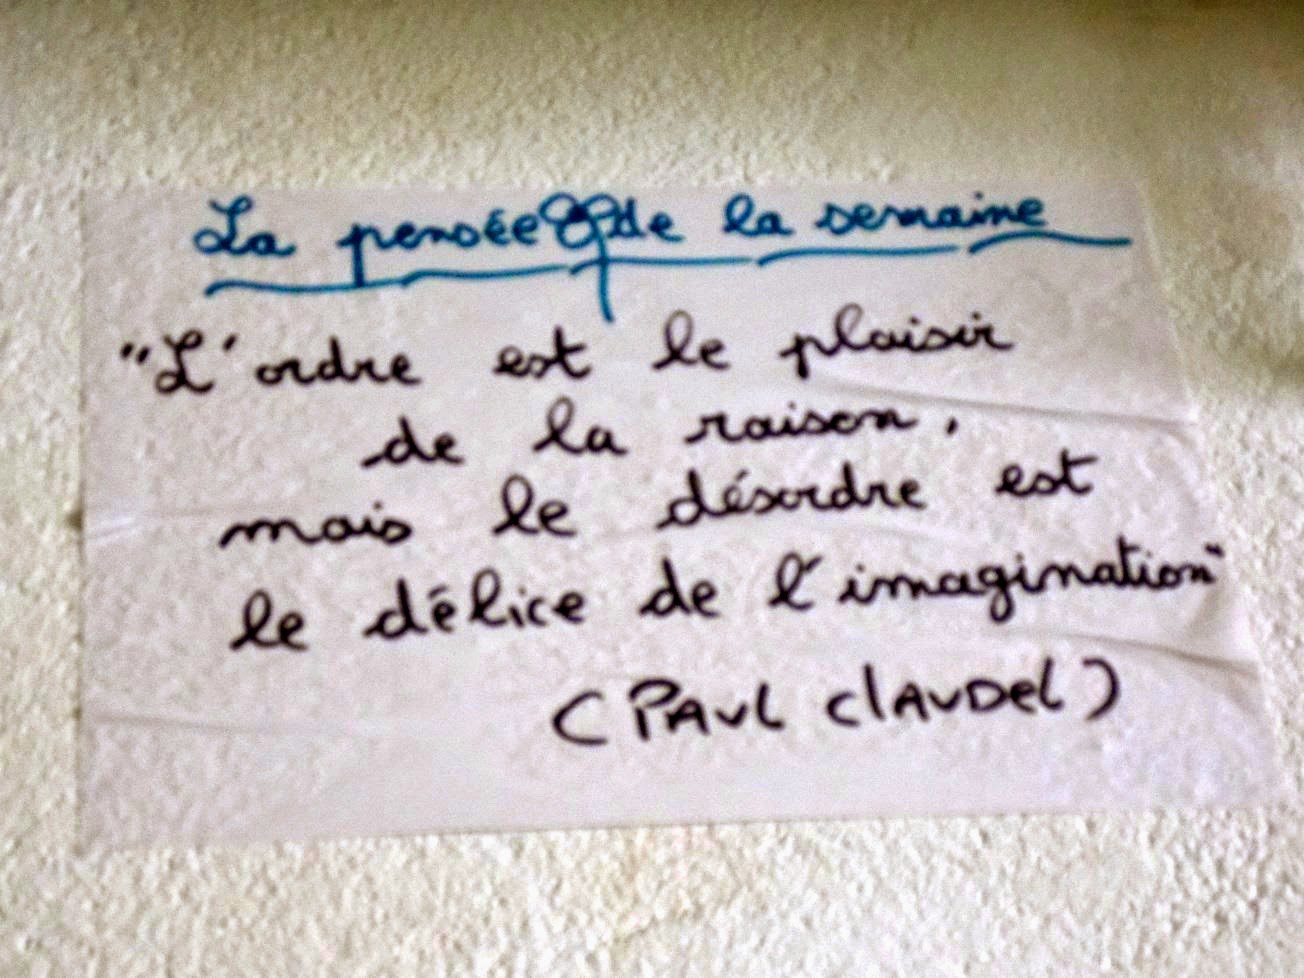 La pensée de la semaine
"L'ordre est le plaisir
de la raison,
mais le désordre est
le délice de l'imagination"
(PAUL CLAUDEL)